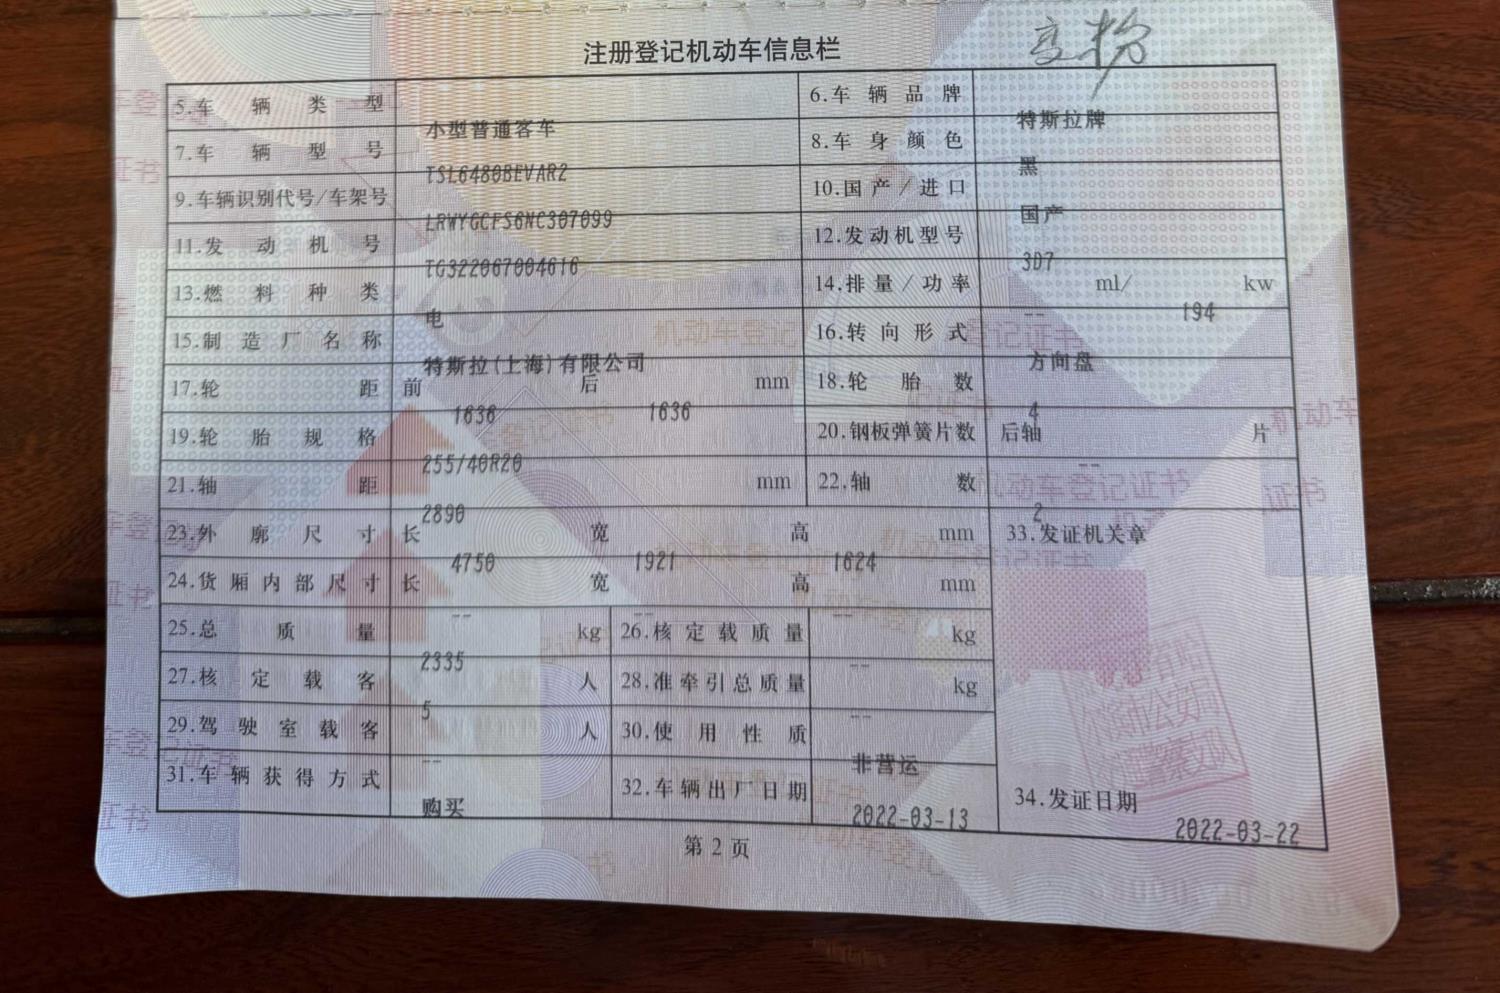 注册登记机动车信息栏
5.车辆类型 小型普通客车 6.车辆品牌 特斯拉牌
7.车辆型号 TSL6480BEVAR2 8.车身颜色 黑
9.车辆识别代号/车架号 LRWYGCFS6NC307099 10.国产/进口 国产
11.发动机号 TG322067004616 12.发动机型号 3D7
13.燃料种类 电 14.排量/功率 -- ml/ 194 kw
15.制造厂名称 特斯拉(上海)有限公司 16.转向形式 方向盘
17.轮距 前 1636 后 1636 mm 18.轮胎数 4
19.轮胎规格 255/40R20 20.钢板弹簧片数 后轴 -- 片
21.轴距 2890 mm 22.轴数 2
23.外廓尺寸 长 4750 宽 1921 高 1624 mm 33.发证机关章
24.货厢内部尺寸 长 -- 宽 -- 高 -- mm
25.总质量 2335 kg 26.核定载质量 -- kg
27.核定载客 5 人 28.准牵引总质量 -- kg
29.驾驶室载客 -- 人 30.使用性质 非营运
31.车辆获得方式 购买 32.车辆出厂日期 2022-03-13 34.发证日期 2022-03-22
第2页